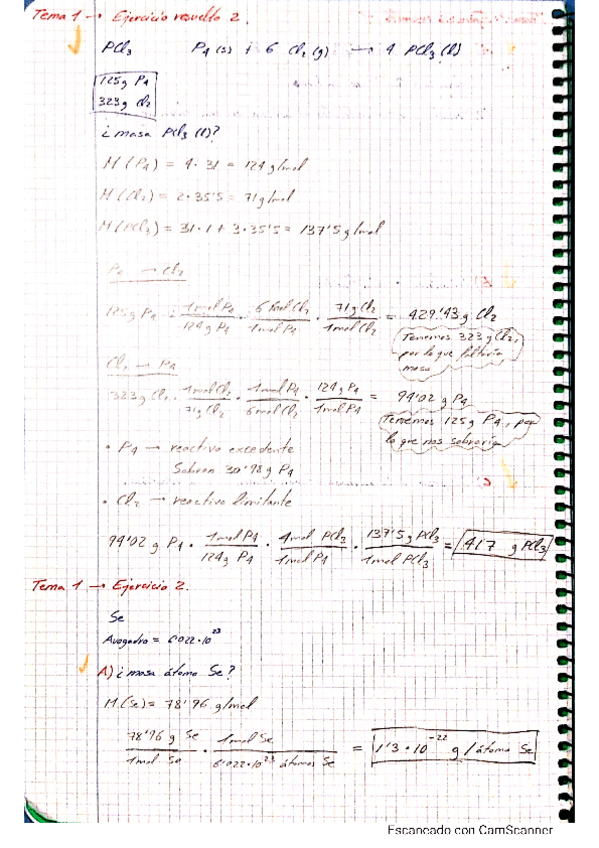 Tema 1 → Ejercicio resuelto 2.
PCl₃ P₄ (s) + 6 Cl₂ (g) → 4 PCl₃ (l)
125g P₄
323g Cl₂
¿masa PCl₃ (l)?
M (P₄) = 4 · 31 = 124 g/mol
M (Cl₂) = 2 · 35'5 = 71 g/mol
M (PCl₃) = 31 · 1 + 3 · 35'5 = 137'5 g/mol
P₄ → Cl₂
125g P₄ · 1mol P₄/124g P₄ · 6mol Cl₂/1mol P₄ · 71g Cl₂/1mol Cl₂ = 429'43 g Cl₂
Tenemos 323 g Cl₂,
por lo que faltaría
masa
Cl₂ → P₄
323g Cl₂ · 1mol Cl₂/71g Cl₂ · 1mol P₄/6mol Cl₂ · 124g P₄/1mol P₄ = 94'02 g P₄
Tenemos 125g P₄, por
lo que nos sobraría
• P₄ → reactivo excedente
Sobran 30'98 g P₄
• Cl₂ → reactivo limitante
94'02 g P₄ · 1mol P₄/124g P₄ · 4mol PCl₃/1mol P₄ · 137'5g PCl₃/1mol PCl₃ = 417 g PCl₃
Tema 1 → Ejercicio 2.
Se
Avogadro = 6'022·10²³
A) ¿masa átomo Se?
M (Se) = 78'96 g/mol
78'96 g Se/1mol Se · 1mol Se/6'022·10²³ átomos Se = 1'3·10⁻²² g/átomo Se
Escaneado con CamScanner